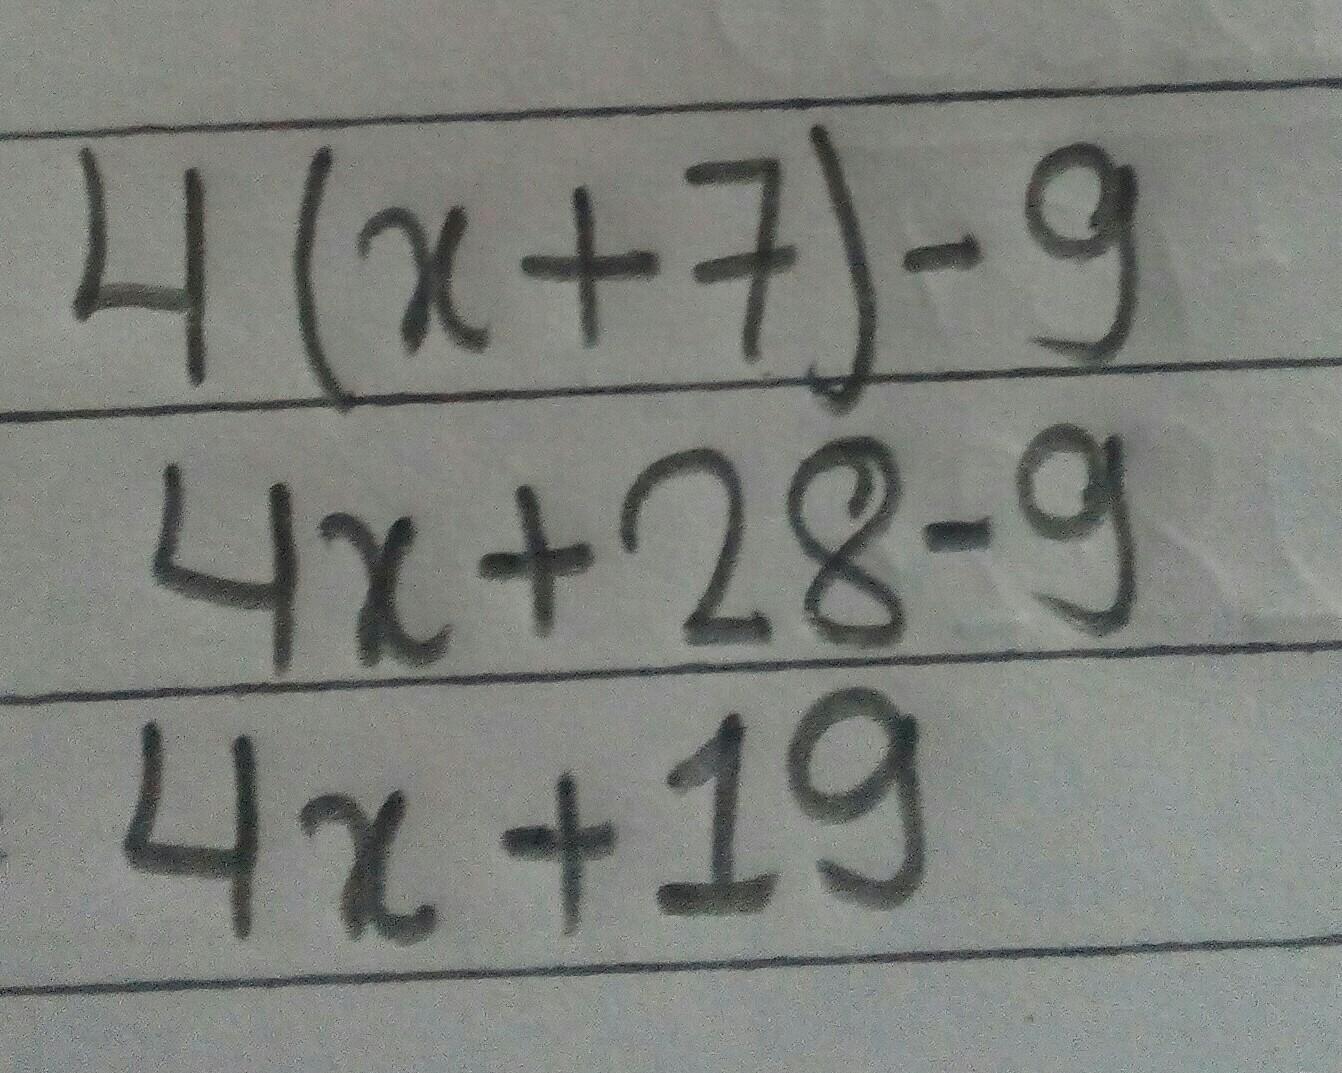 4(x+7)-9
4x+28-9
4x+19